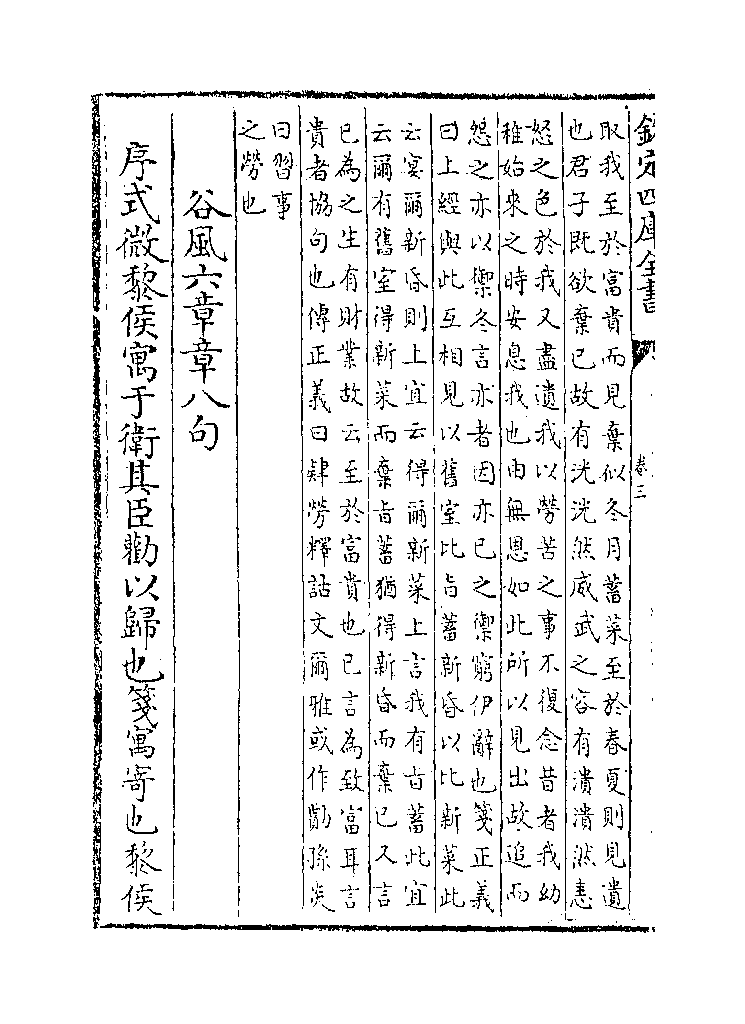 欽定四庫全書
卷三
取我至於富貴而見棄似冬月蓄菜至於春夏則見遺
也君子既欲棄已故有洸洸然威武之容有潰潰然恚
怒之色於我又盡遺我以勞苦之事不復念昔者我幼
稚始來之時安息我也由無恩如此所以見出故追而
怨之亦以禦冬言亦者因亦已之禦窮伊辭也箋正義
曰上經與此互相見以舊室比旨蓄新昏以比新菜此
云宴爾新昏則上宜云得爾新菜上言我有旨蓄此宜
云爾有舊室得新菜而棄旨蓄猶得新昏而棄已又言
已為之生有財業故云至於富貴也已言為致富耳言
貴者協句也傳正義曰肄勞釋詁文爾雅或作勩孫炎
曰習事
之勞也
谷風六章章八句
序式微黎侯寓于衛其臣勸以歸也箋寓寄也黎侯